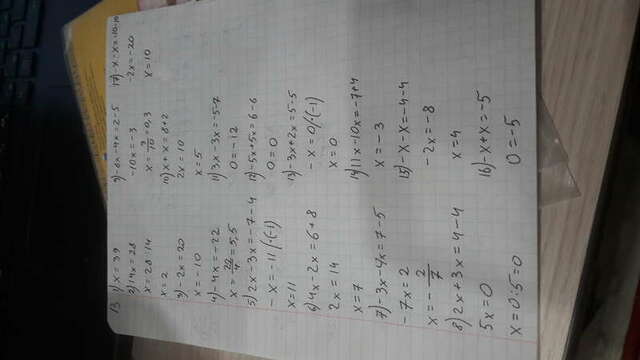 13 1) x = 39
2) 14x = 28
x = 28 : 14
x = 2
3) -2x = 20
x = -10
4) -4x = -22
x = 22/4 = 5,5
5) 2x - 3x = -7 - 4
- x = -11 |·(-1)
x = 11
6) 4x - 2x = 6 + 8
2x = 14
x = 7
7) -3x - 4x = 7 - 5
-7x = 2
x = - 2/7
8) 2x + 3x = 4 - 4
5x = 0
x = 0 : 5 = 0
9) -6x - 4x = 2 - 5
-10x = -3
x = 3/10 = 0,3
10) x + x = 8 + 2
2x = 10
x = 5
11) 3x - 3x = -5 - 7
0 = -12
12) -5x + 5x = 6 - 6
0 = 0
13) -3x + 2x = 5 - 5
- x = 0 |·(-1)
x = 0
14) 11x - 10x = -7 + 4
x = -3
15) -x - x = -4 - 4
-2x = -8
x = 4
16) -x + x = -5
0 = -5
17) -x - x = -10 - 10
-2x = -20
x = 10